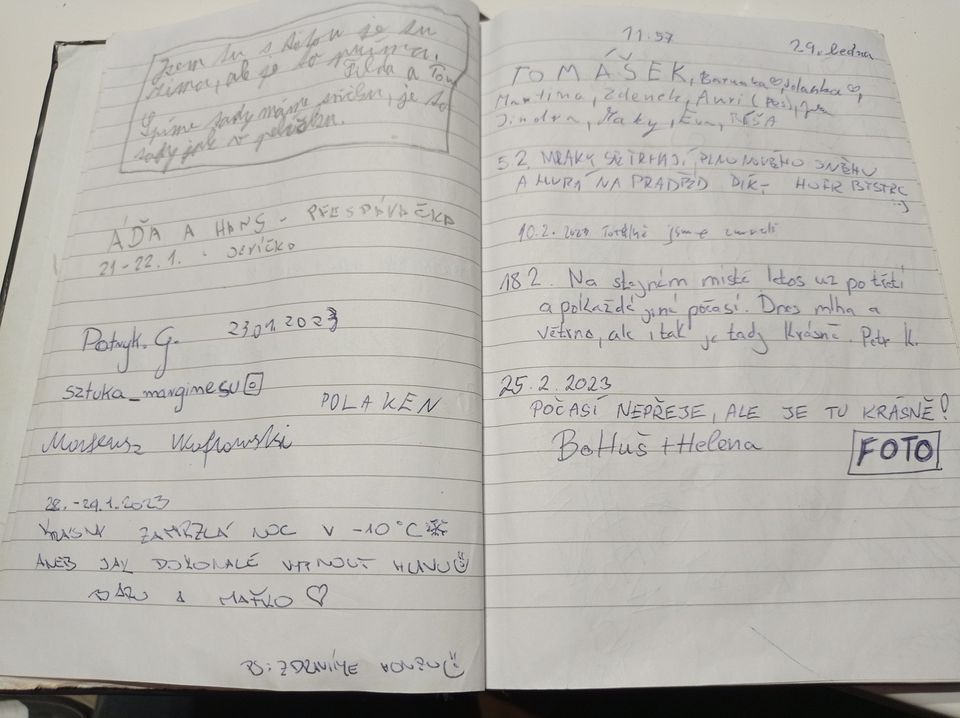 Jsem tu s Tátou je tu
zima, ale je to prima.
Filda a Tom
Spíme tady máme svíčku, je to
tady jak v pelíšku.
ÁĎA A HANS - PŘESPÁVAČKA
21-22.1. JEVÍČKO
Patryk. G. 23.01.2023
sztuka_marginesu
POLAKEN
Mateusz
28.-29.1.2023
KRÁSNÁ ZAMRZLÁ NOC V -10°C
ANEB JAK DOKONALE VYPNOUT HLAVU
A MAŤKO ♡
PS: ZDRAVÍME HONZU
11:57
29. ledna
TOMÁŠEK, Barunka ♡, Jolanka ♡,
Martina, Zdenek, Auri (Pes),
Jindra, Maky, Eva,
5.2. MRAKY SE TRHAJÍ, PLNO NOVÉHO SNĚHU
A HURÁ NA PRADĚD DÍK,
:-)
10.2. 2023 Totálně jsme zmrzli
18 2. Na stejném místě letos už po třetí
a pokaždé jiné počasí. Dnes mlha a
větrno, ale i tak je tady krásně. Petr K.
25.2.2023
POČASÍ NEPŘEJE, ALE JE TU KRÁSNĚ!
BoHuš + Helena
FOTO